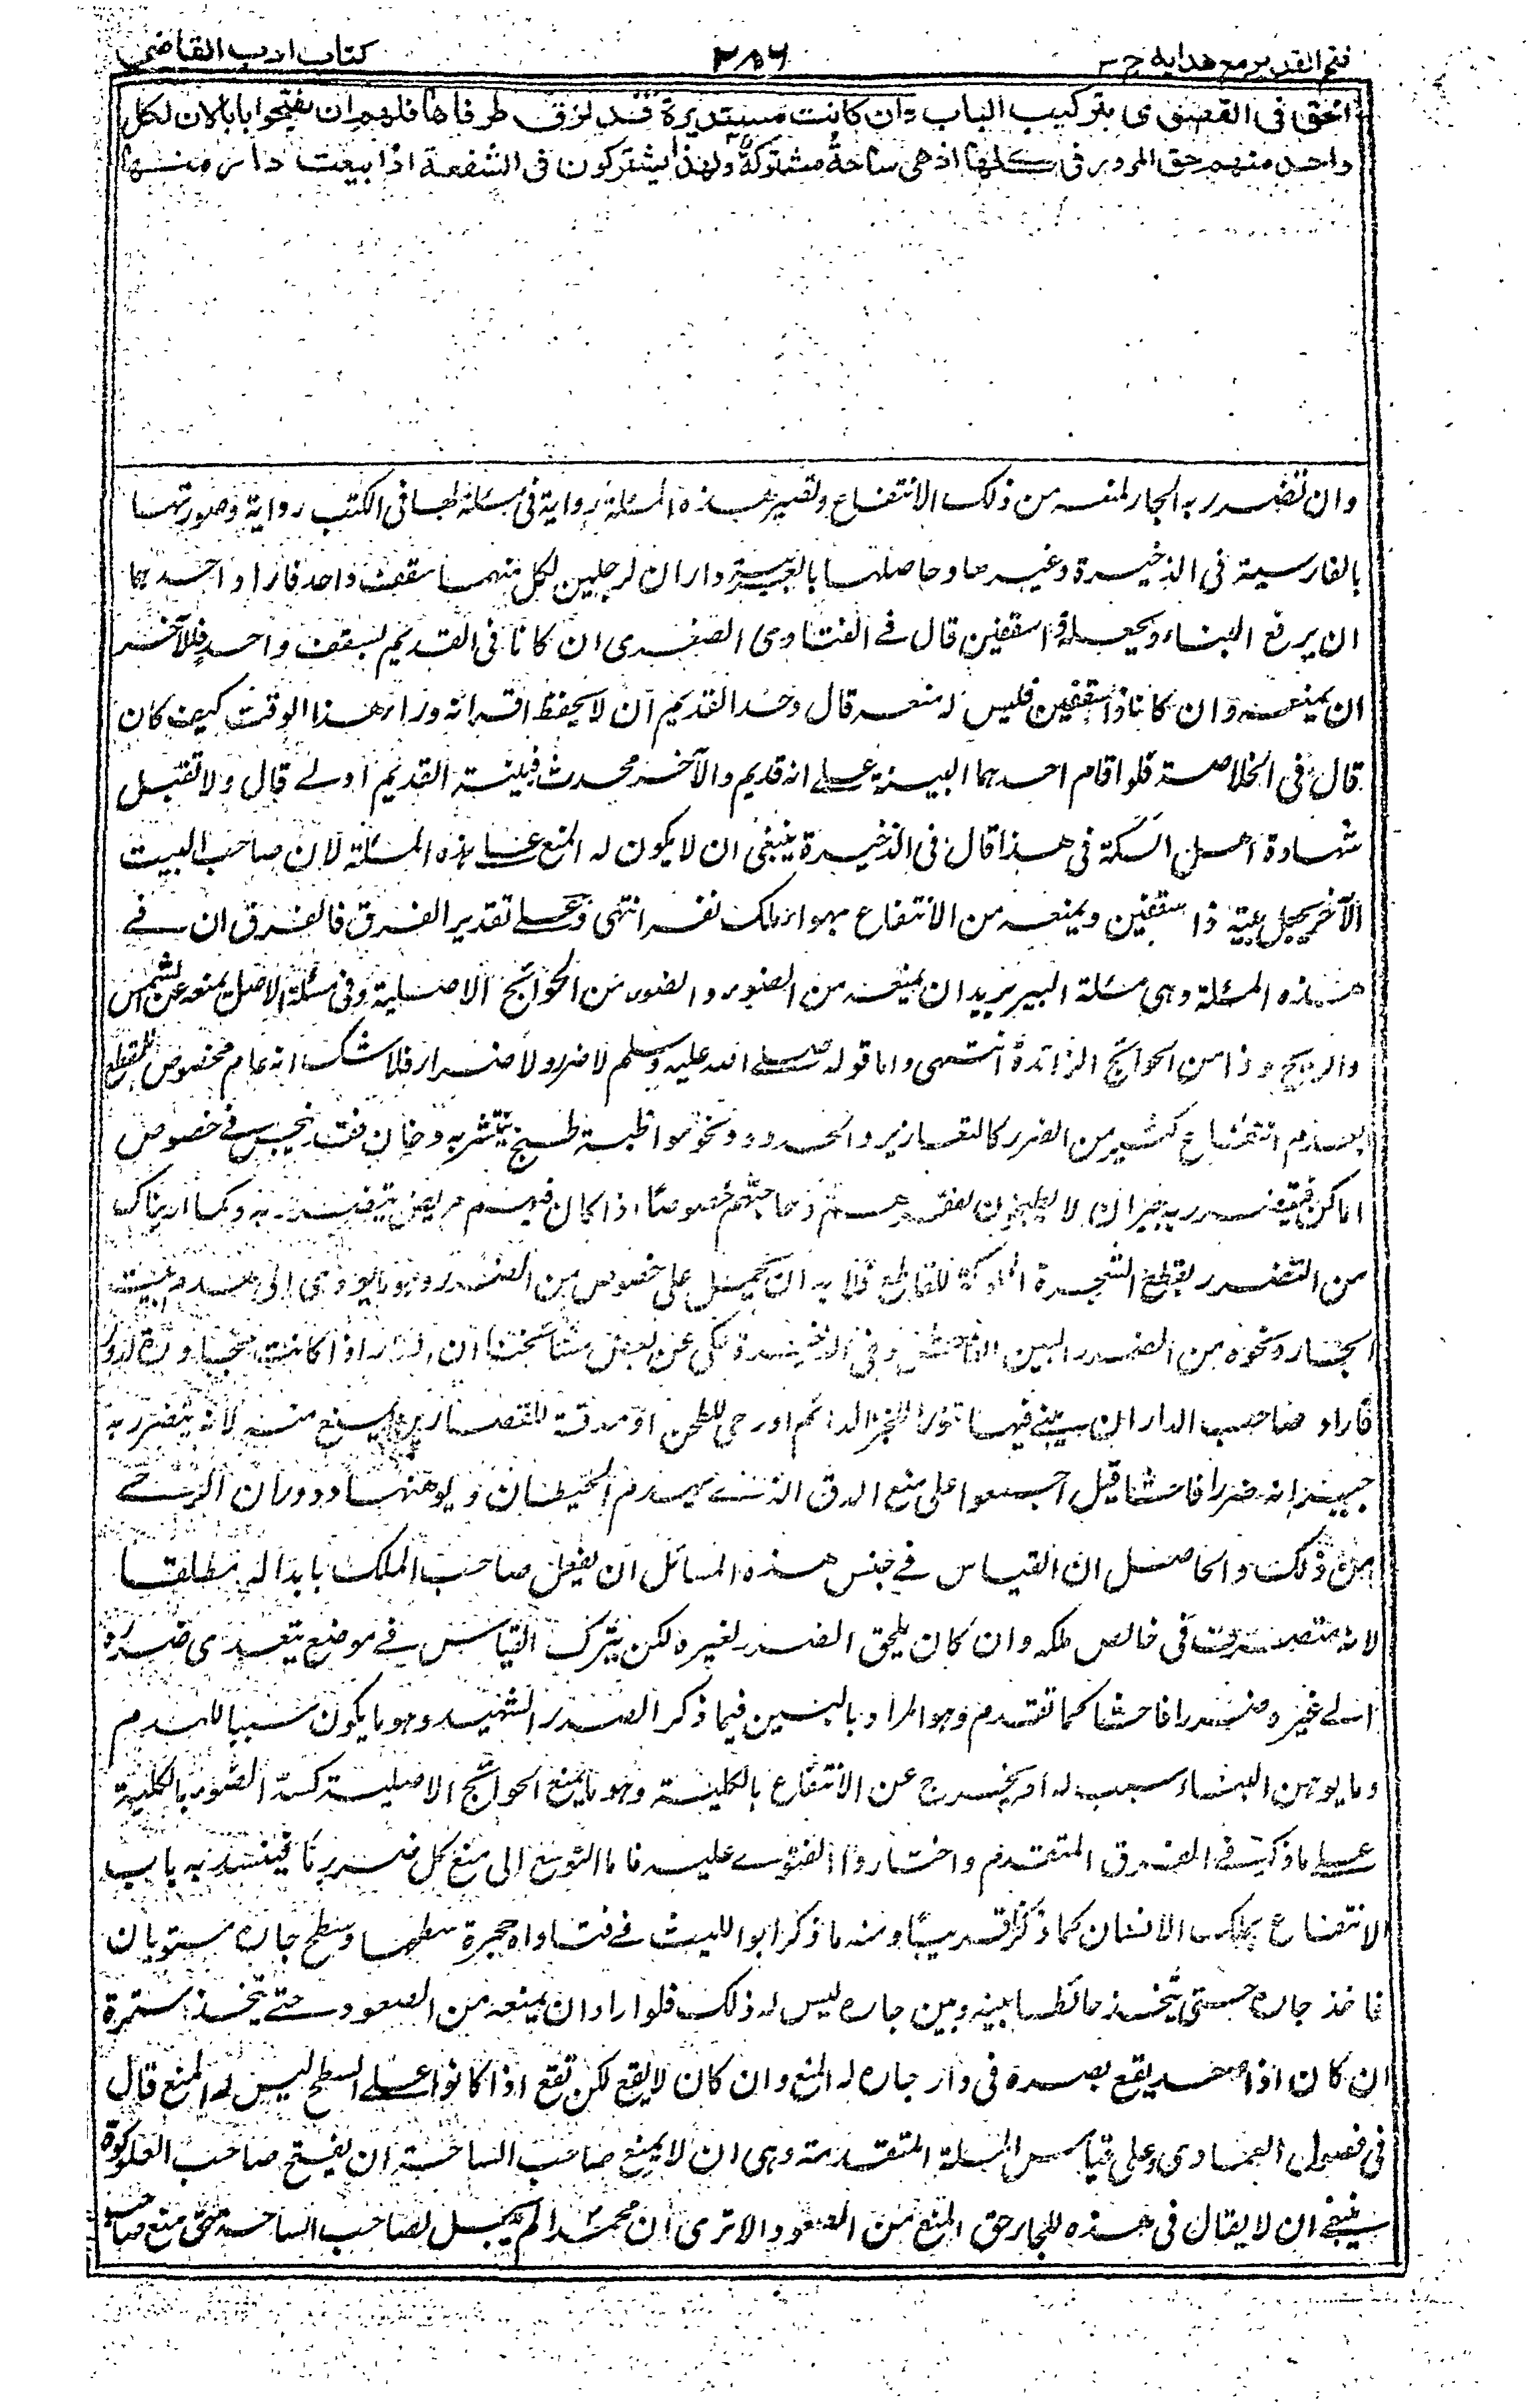 فتح القدير مع هدايه ج ٣
٣٥٦
كتاب ادب القاضي
الحق فى القصوى بتركيب الباب وان كانت مستديرة قد لزق طرفاها فلهم ان يفتحوا بابا لان لكل
واحد منهم حق المرور فى كلها اذ هى ساحة مشتركة ولهذا يشتركون فى الشفعة اذا بيعت دار منها
وان تضرر به الجار لمنعه من ذلك الانتفاع وتصير هذه المسئلة رواية فى مسئلة لها فى الكتب رواية وصورتها
بالفارسية فى الذخيرة وغيرها وحاصلها بالعربية داران لرجلين لكل منهما سقف واحد فاراد احدهما
ان يرفع البناء ويجعله ذا سقفين قال فے الفتاوى الصغرى ان كانا فى القديم بسقف واحد فللآخر
ان يمنعه وان كانا ذا سقفين فليس له منعه قال وحد القديم ان لا يحفظ اقرانه وراء هذا الوقت كيف كان
قال فى الخلاصة فلو اقام احدهما البينة علے انه قديم والآخر محدث فبينة القديم اولے قال ولا تقبل
شهادة اهل السكة فى هذا قال فى الذخيرة ينبغى ان لا يكون له المنع علے هذه المسئلة لان صاحب البيت
الآخر يجعل بيته ذا سقفين ويمنعه من الانتفاع بهواء ملك نفسه انتهى وعلے تقدير الفرق فالفرق ان فے
هذه المسئلة وهى مسئلة البير يريد ان يمنعه من الضوء والضوء من الحوائج الاصلية وفى مسئلة الاصل يمنعه عن الشمس
والريح وذا من الحوائج الزائدة انتهى واما قوله صلے الله عليه وسلم لا ضرر ولا ضرار فلا شك انه عام مخصوص للقطع
بعدم امتناع كثير من الضرر كالتعازير والحدود ونحو مواظبة طبخ ينتشر به دخان قد يحبس فے خصوص
اماكن فيتضرر به جيران لا يطبخون لفقرهم وحاجتهم خصوصا اذا كان فيهم مريض يتضرر به وكما اريناك
من التضرر بقطع الشجرة المملوكة للقاطع فلا بد ان يحمل على خصوص من الضرر وهو ما يؤدى الى هدم بيت
الجار ونحوه من الضرر البين الفاحش وفى الذخيرة حكى عن بعض مشائخنا ان الدار اذا كانت مجاورة لدور
فاراد صاحب الدار ان يبنے فيها تنورا للخبز الدائم او رحى للطحن او مدقة للقصارين يمنع منه لانه يتضرر به
جيرانه ضررا فاحشا قيل اجمعوا على منع الدق الذے يهدم الحيطان ويوهنها ودوران الرحے
من ذلك والحاصل ان القياس فے جنس هذه المسائل ان يفعل صاحب الملك ما بدا له مطلقا
لانه متصرف فى خالص ملكه وان كان يلحق الضرر لغيره لكن يترك القياس فے موضع يتعدى ضرره
الے غيره ضررا فاحشا كما تقدم وهو المراد بالبين فيما ذكر الصدر الشهيد وهو ما يكون سببا للهدم
وما يوهن البناء سبب له او يخرج عن الانتفاع بالكلية وهو ما يمنع الحوائج الاصلية كسد الضوء بالكلية
علے ما ذكر فے الفرق المتقدم واختاروا الفتوے عليه فاما التوسع الى منع كل ضرر ما فينسد به باب
الانتفاع بملك الانسان كما ذكر قريبا ومنه ما ذكر ابو الليث فے فتاواه حجرة سطحها وسطح جاره مستويان
فاخذ جاره حتى يتخذ حائطا بينه وبين جاره ليس له ذلك فلو اراد ان يمنعه من الصعود حتے يتخذ سترة
ان كان اذا صعد يقع بصره فى دار جاره له المنع وان كان لا يقع لكن تقع اذا كانوا علے السطح ليس له المنع قال
فى فصول العمادى وعلى قياس المسئلة المتقدمة وهى ان لا يمنع صاحب الساحة ان يفتح صاحب العلو كوة
ينبغے ان لا يقال فى هذه للجار حق المنع من الصعود الا ترى ان محمدا لم يجعل لصاحب الساحة حق منع صاحب